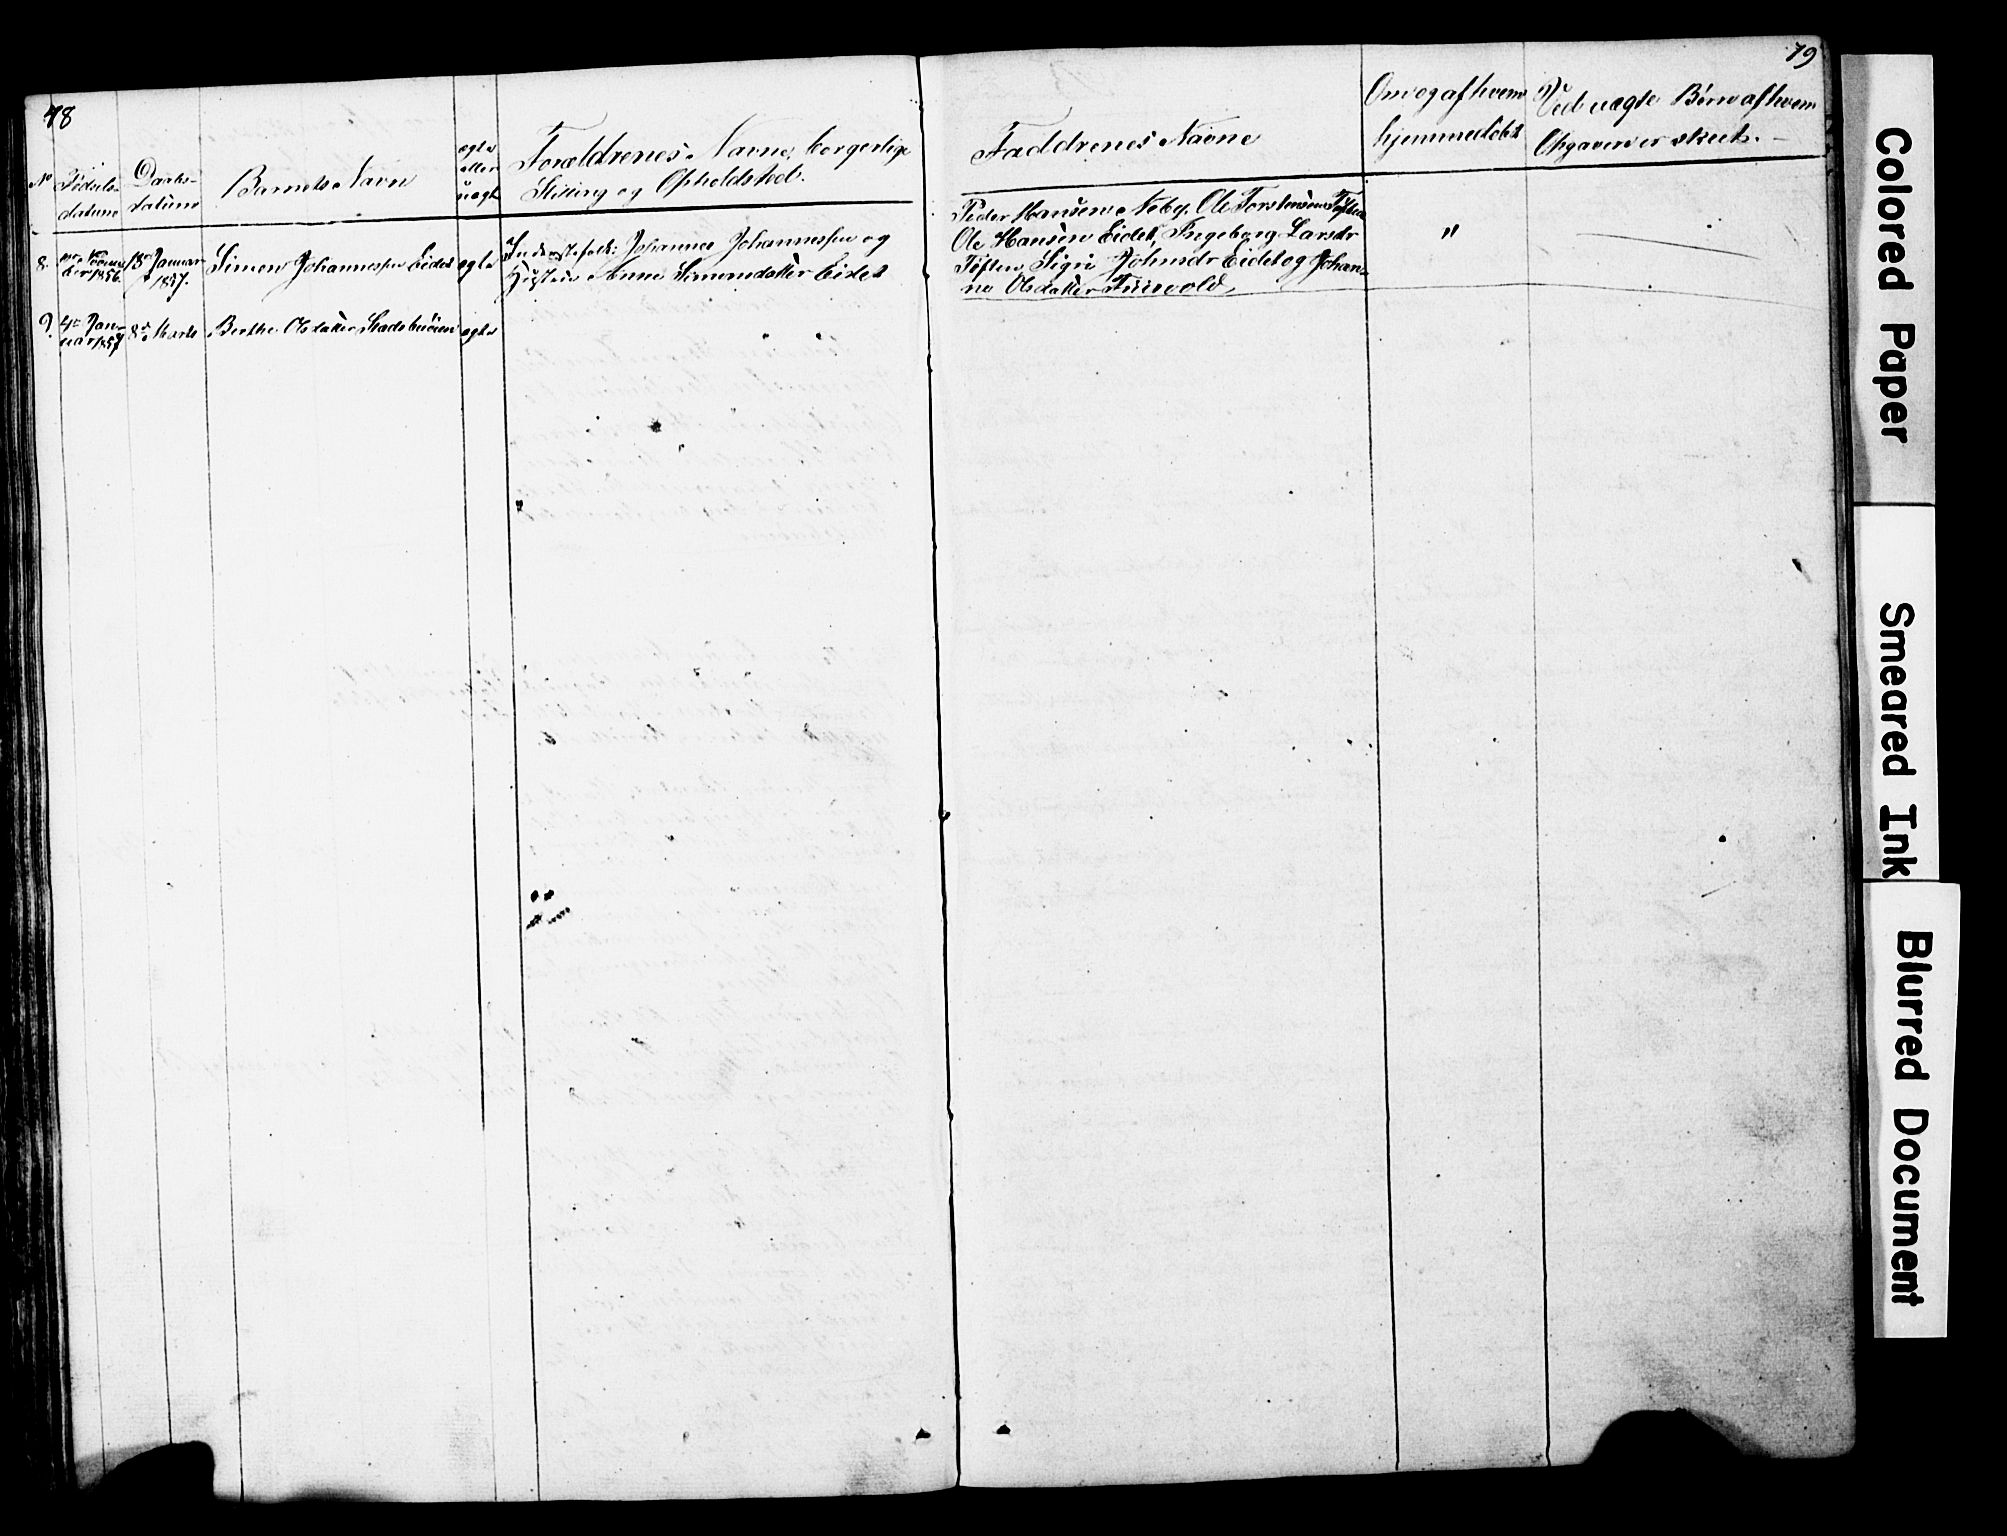 78
No
Fødsels-
datum
Daabs-
datum
Barnets Navn
egte
eller
uegte
Forældrenes Navne, borgerlige
Stilling og Opholdsted.
8.
1856.
13de Januar
1857.
Simen Johannessen Eidet
egte
Johannes Johannessen og
Hustru Anne Simensdatter Eidet
9.
4de Jan-
uar 1857
8de Marts
Berthe Olsdatter
egte
79
Faddrenes Navne
Om og af hvem
hjemmedøbt
Ved uegte Børn af hvem
Opgaven er skeet. —
Peder Hansen Neby, Ole Torstensen Tøften
Ole Hansen Eidet, Ingeborg Larsdr
Tøften, Sigri Johnsdr Eidet og Johan-
ne Olsdatter
"
—
Colored Paper
Smeared Ink
Blurred Document